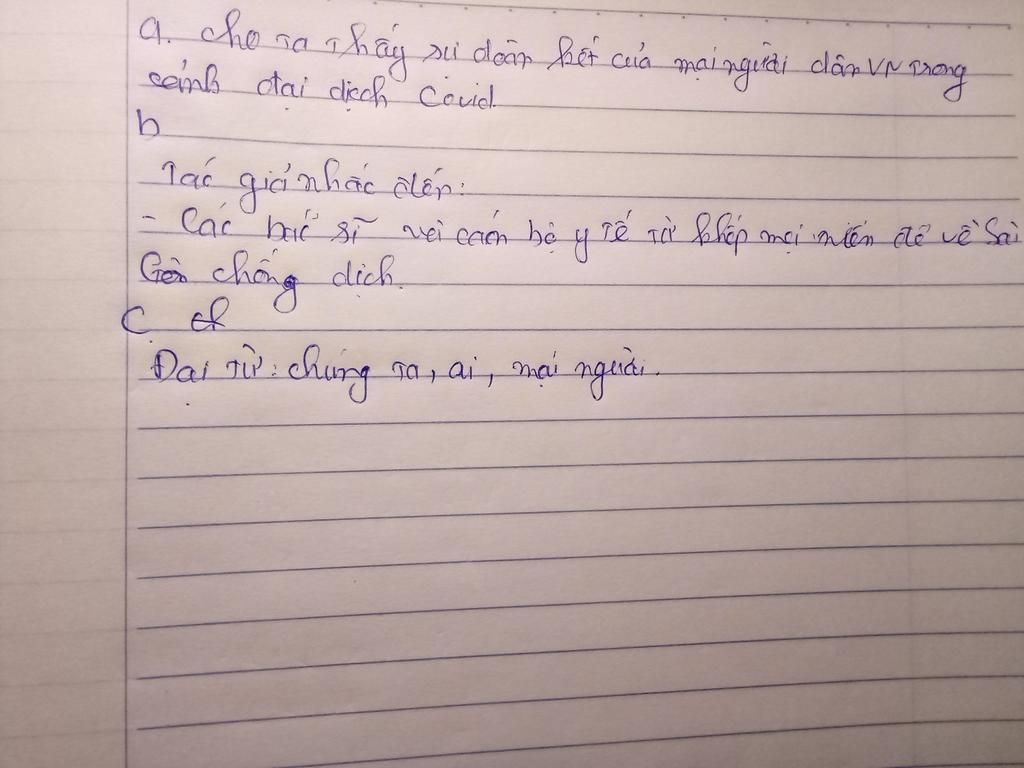 a. cho ta thấy sự đoàn kết của mọi người dân VN trong
cảnh đại dịch Covid.
b
Tác giả nhắc đến:
- Các bác sĩ với cán bộ y tế từ khắp mọi miền để về Sài
Gòn chống dịch.
C ch
Đại từ: chúng ta, ai, mọi người.